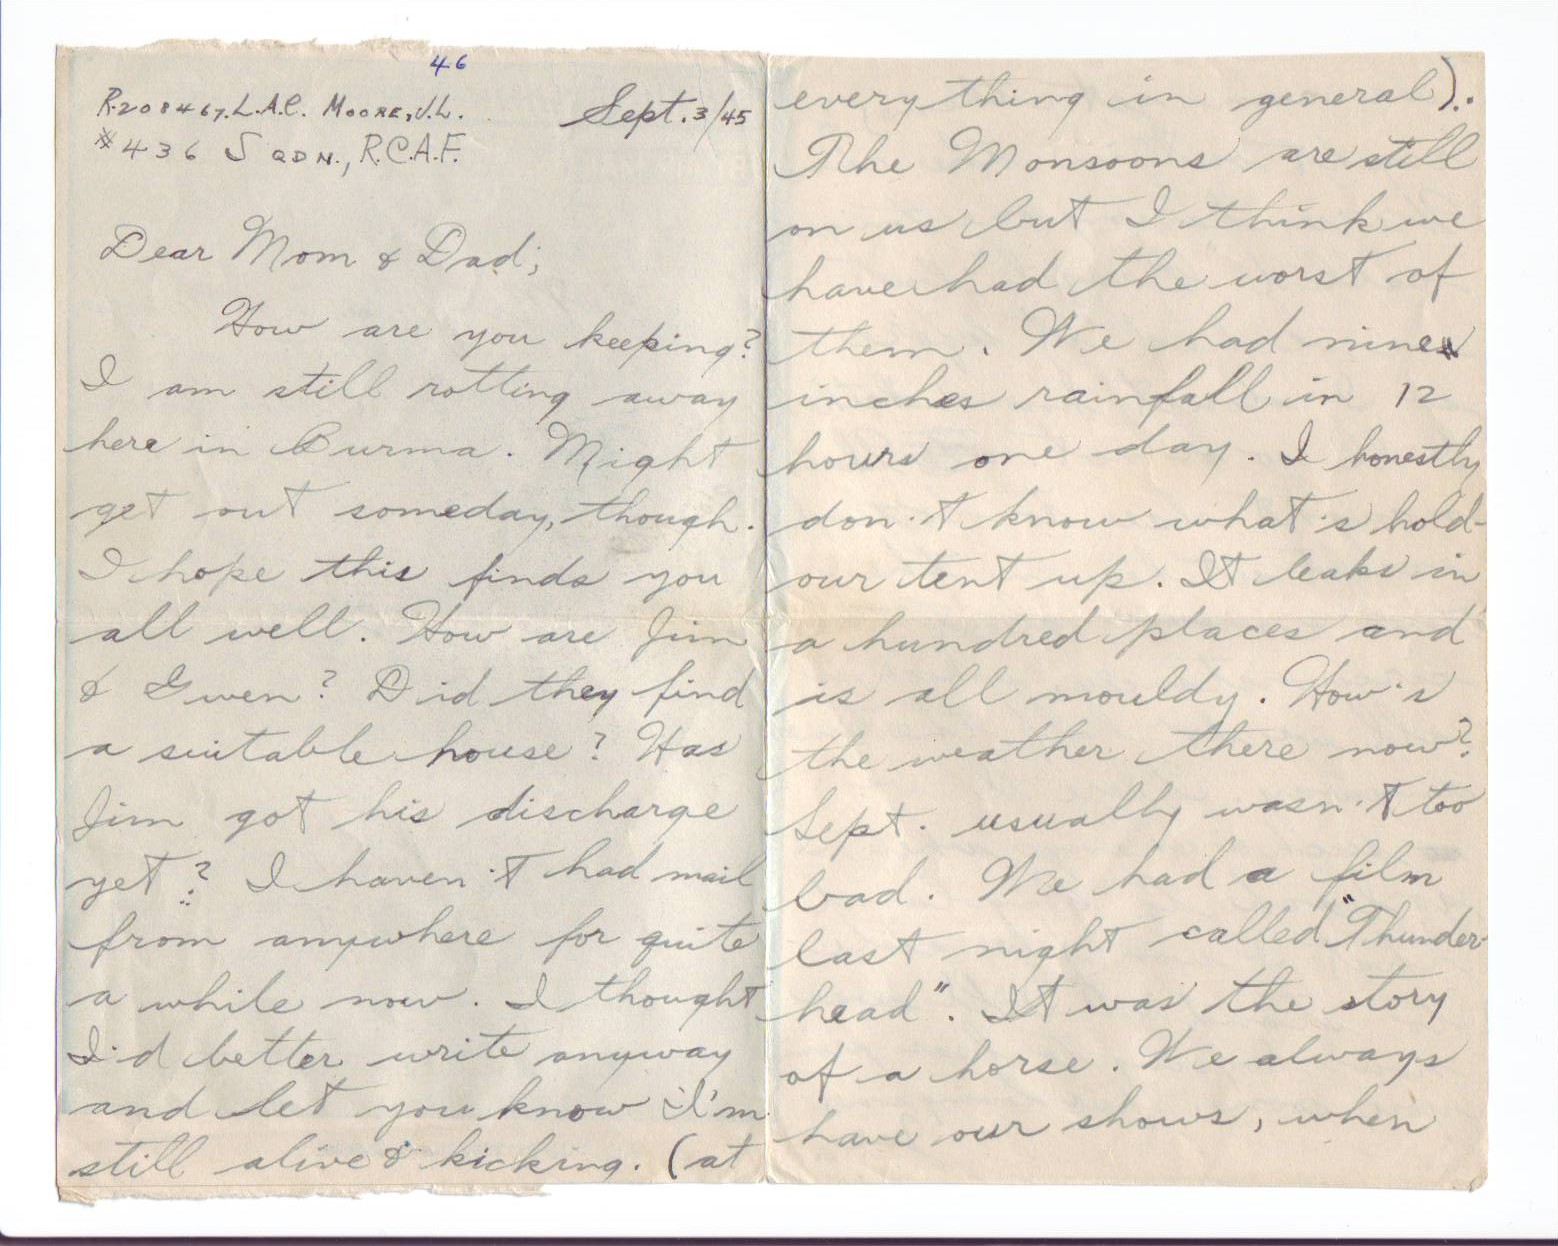 46
R.208467.L.A.C. MOORE, J.L.
Sept. 3/45
#436 SQDN., R.C.A.F.
Dear Mom & Dad;
How are you keeping?
I am still rotting away
here in Burma. Might
get out someday, though.
I hope this finds you
all well. How are Jim
& Gwen? Did they find
a suitable house? Has
Jim got his discharge
yet? I haven't had mail
from anywhere for quite
a while now. I thought
I'd better write anyway
and let you know I'm
still alive & kicking. (at
everything in general).
The Monsoons are still
on us but I think we
have had the worst of
them. We had nine
inches rainfall in 12
hours one day. I honestly
don't know what's hold-
our tent up. It leaks in
a hundred places and
is all mouldy. How's
the weather there now?
Sept. usually wasn't too
bad. We had a film
last night called "Thunder-
head". It was the story
of a horse. We always
have our shows, when